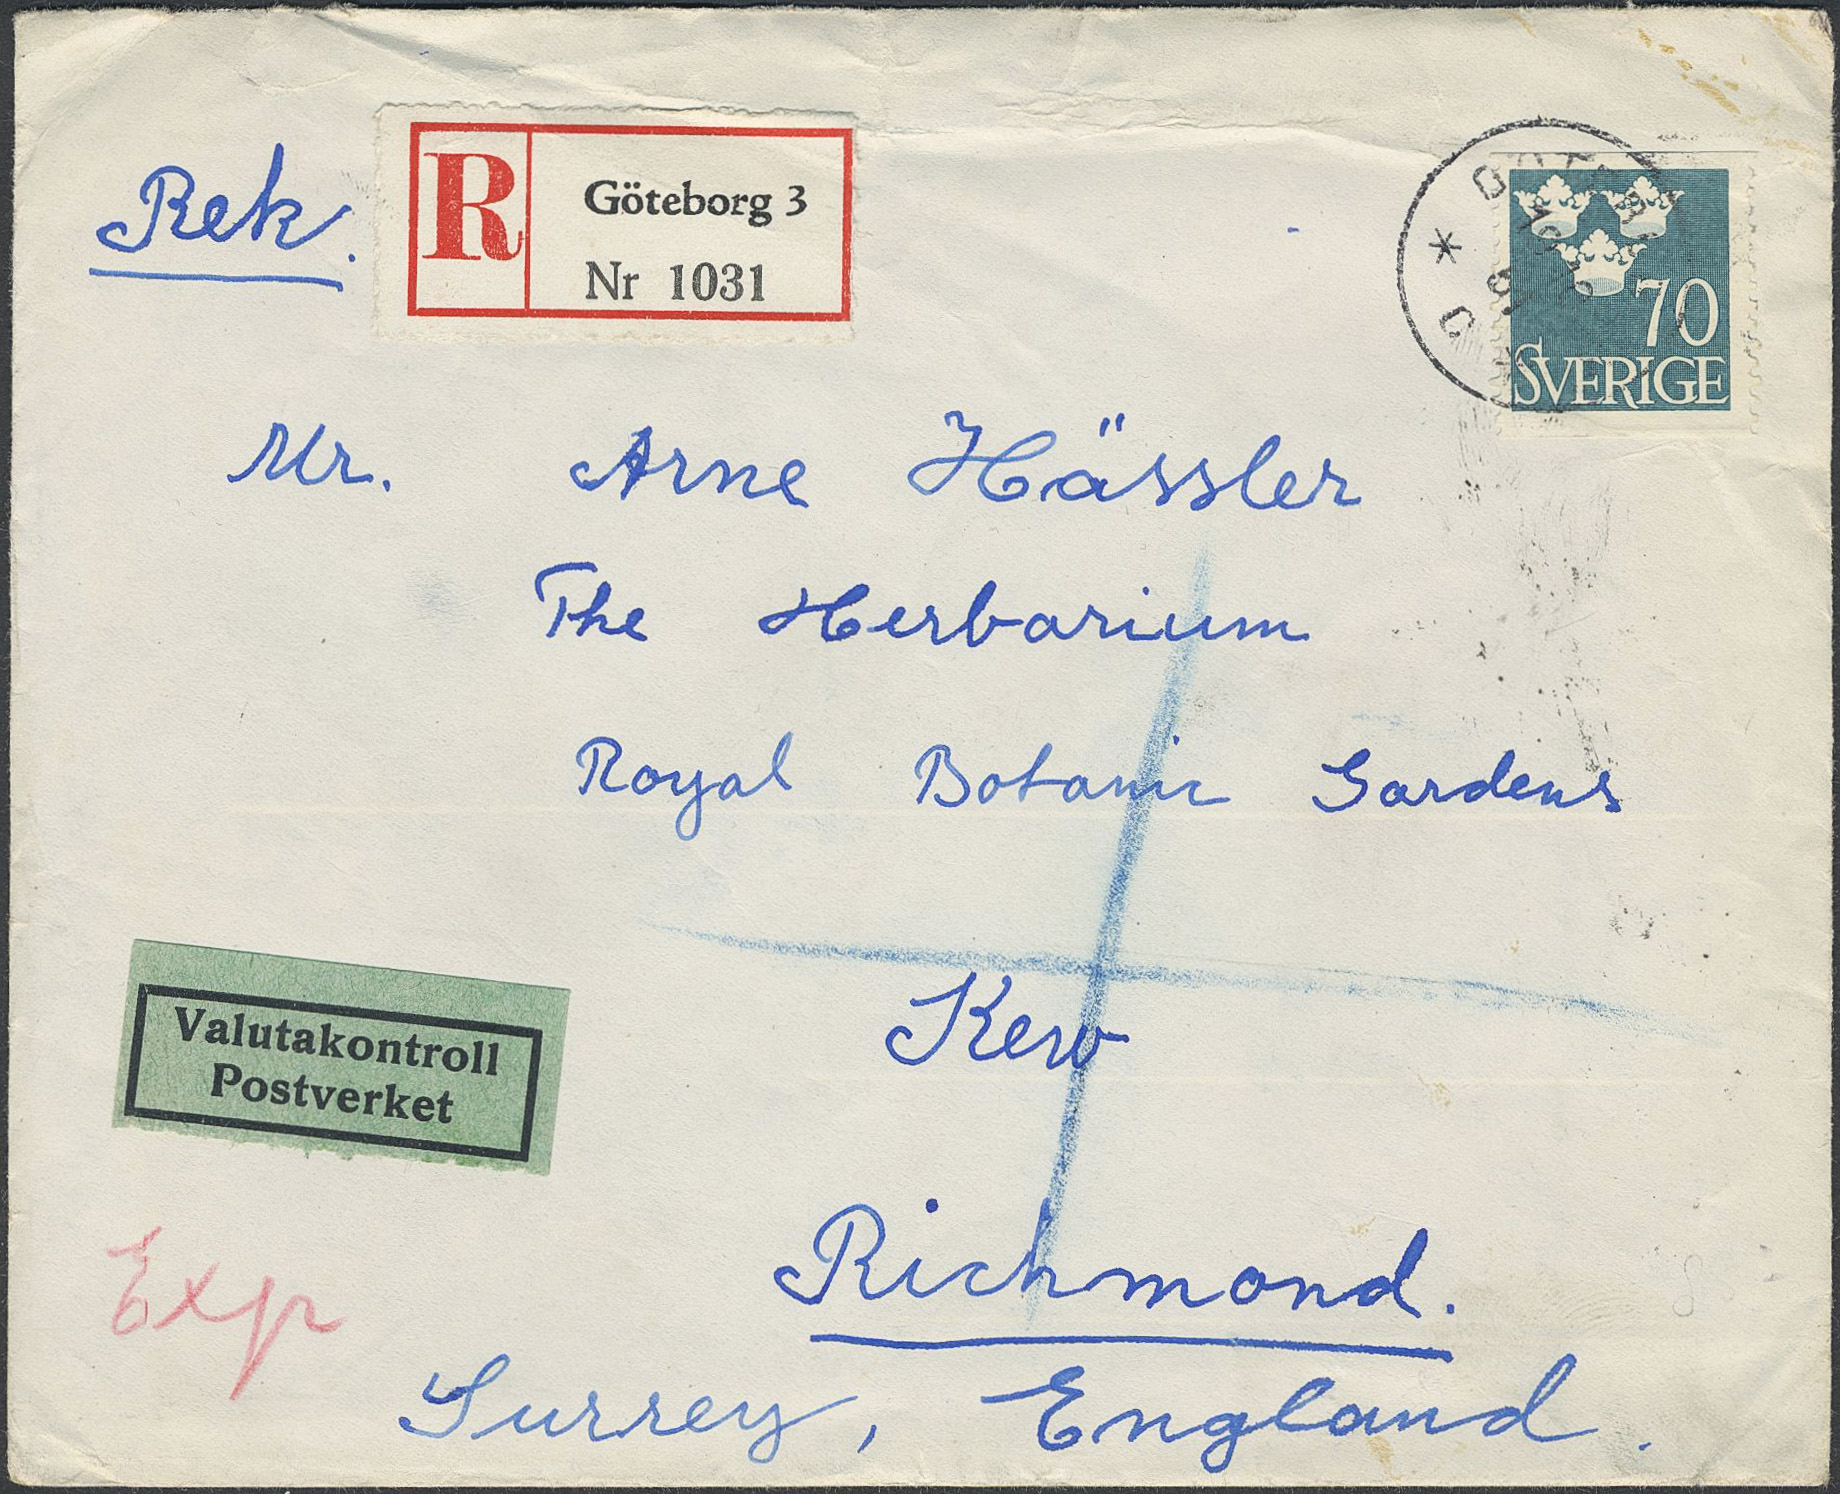 Rek.
R
Göteborg 3
Nr 1031
70
SVERIGE
Mr. Arne Hässler
The Herbarium
Royal Botanic Gardens
Kew
Valutakontroll
Postverket
Richmond.
Exp
Surrey, England.